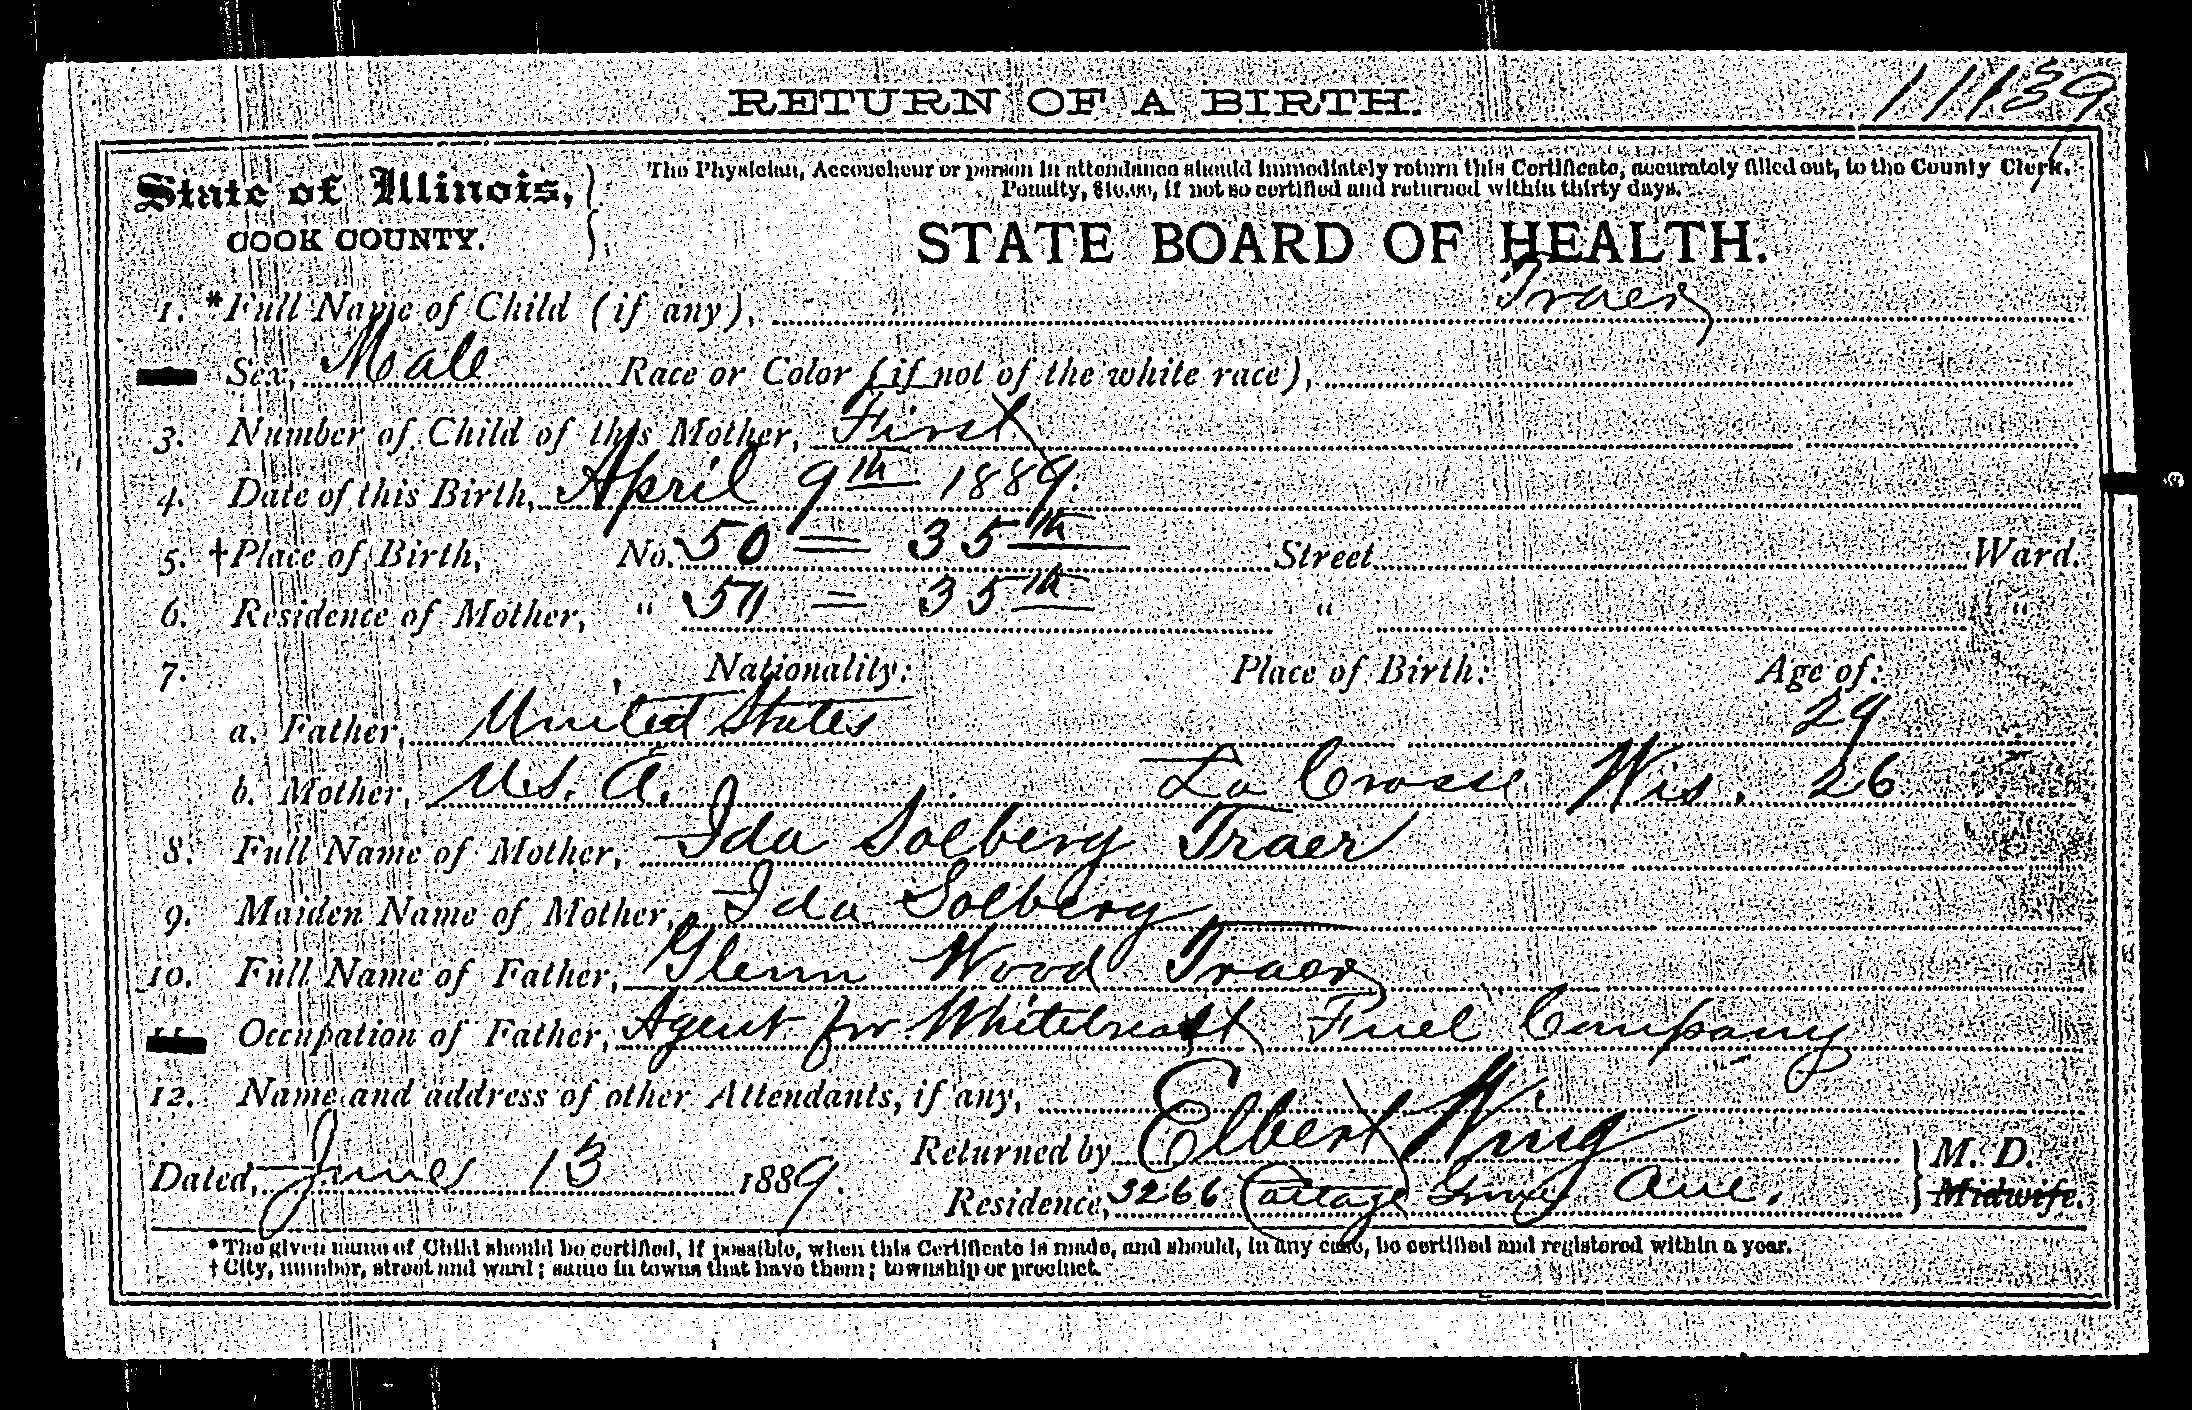 RETURN OF A BIRTH.
11139
State of Illinois,
COOK COUNTY.
The Physician, Accoucheur or person in attendance should immediately return this Certificate, accurately filled out, to the County Clerk.
Penalty, $10.00, if not so certified and returned within thirty days.
STATE BOARD OF HEALTH.
1. *Full Name of Child (if any), Traer
Sex, Male Race or Color (if not of the white race),
3. Number of Child of this Mother, First
4. Date of this Birth, April 9th 1889.
5. †Place of Birth, No. 50 = 35th Street Ward.
6. Residence of Mother, " 50 = 35th " "
7. Nationality: Place of Birth: Age of:
a. Father, United States 29
b. Mother, U.S. A. La Crosse Wis. 26
8. Full Name of Mother, Ida Solberg Traer
9. Maiden Name of Mother, Ida Solberg
10. Full Name of Father, Glenn Wood Traer
11. Occupation of Father, Agent for Whitebreast Fuel Company
12. Name and address of other Attendants, if any,
Returned by Elbert Wing M. D.
Dated, June 13 1889.
Residence, 3266 Cottage Grove Ave. Midwife.
* The given name of Child should be certified, if possible, when this Certificate is made, and should, in any case, be certified and registered within a year.
† City, number, street and ward; same in towns that have them; township or precinct.